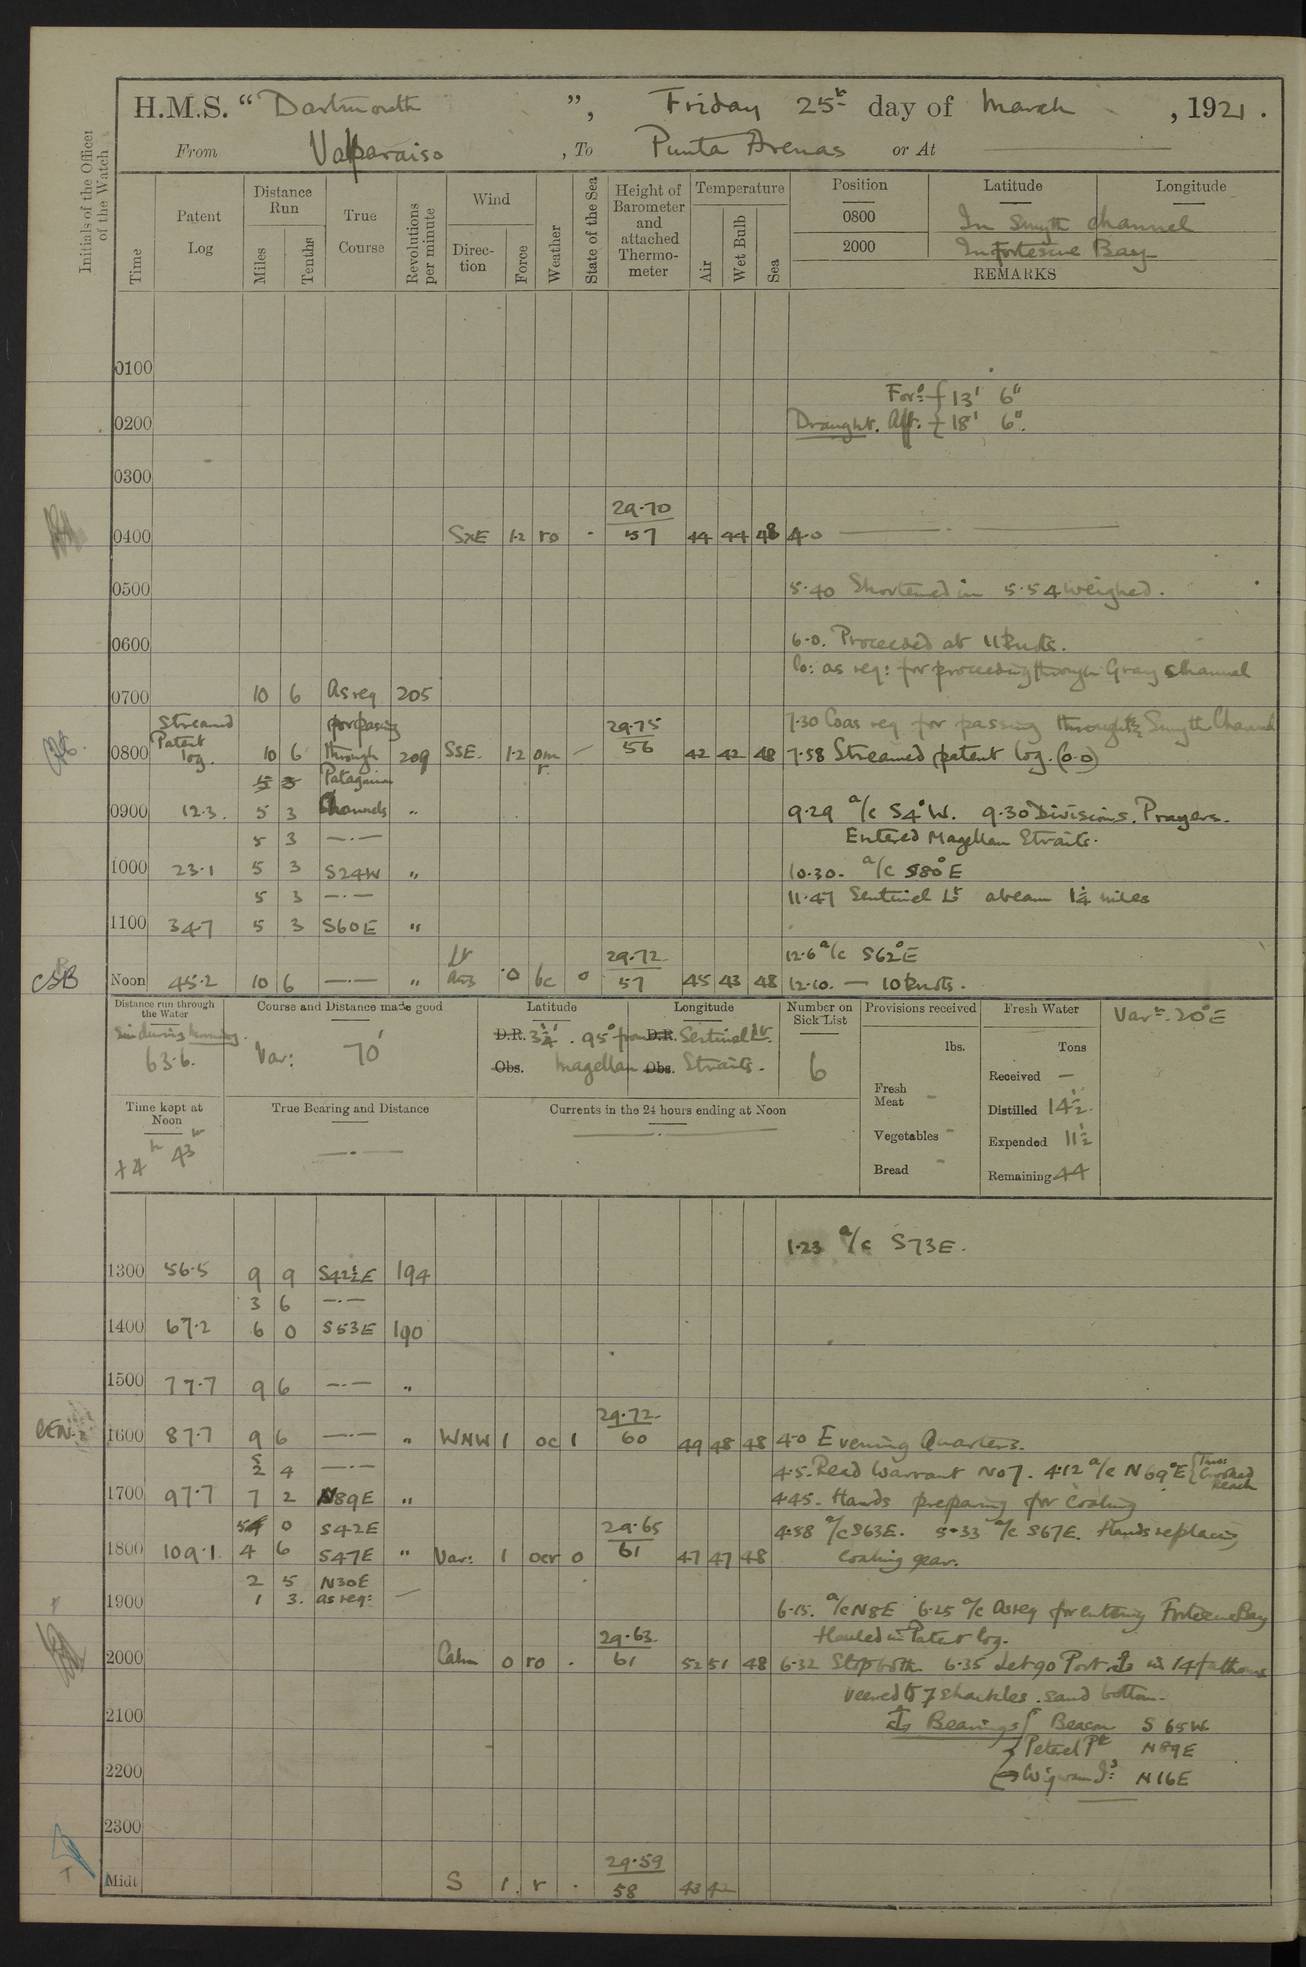 H.M.S. "Dartmouth", Friday 25th day of March, 1921.
From Valparaiso, To Punta Arenas or At
Initials of the Officer of the Watch
Time
Patent Log
Distance Run
Miles
Tenths
True Course
Revolutions per minute
Wind
Direction
Force
Weather
State of the Sea
Height of Barometer and attached Thermometer
Temperature
Air
Wet Bulb
Sea
Position
Latitude
Longitude
0800 In Smyth Channel
2000 In Fortescue Bay
REMARKS
0100
For:d { 13' 6"
0200 Draught. Aft. { 18' 6".
0300
29.70
0400 SxE 1.2 ro - 57 44 44 48 4.0
0500 5.40 Shortened in 5.54 weighed.
0600 6.0. Proceeded at 11 knots.
Co: as req: for proceeding through Gray channel
0700 10 6 As req 205
Streamed for passing 29.75 7.30 Co as req for passing through Smyth Channel
0800 Patent log. 10 6 through 209 SSE. 1.2 om r. - 56 42 42 48 7.58 Streamed patent log. (0.0)
5 3 Patagonian
0900 12.3. 5 3 Channels " 9.29 a/c S4°W. 9.30 Divisions. Prayers.
5 3 Entered Magellan Straits.
1000 23.1 5 3 S24W " 10.30. a/c S80°E
5 3 11.47 Sentinel Lt abeam 1¼ miles
1100 34.7 5 3 S60E "
Lt 29.72 12.6 a/c S62°E
CSB Noon 45.2 10 6 " airs 0 bc 0 57 45 43 48 12.10. — 10 knots.
Distance run through the Water
63.6.
Course and Distance made good
Var: 70'
Latitude
Longitude
D.R. 3¼'. 95° from D.R. Sentinel Lt.
Obs. Magellan Obs. Straits.
Number on Sick List
6
Provisions received
lbs.
Fresh Meat -
Vegetables -
Bread -
Fresh Water
Tons
Received —
Distilled 14½.
Expended 11½
Remaining 44
Varn. 20°E
Time kept at Noon
+4h 43m
True Bearing and Distance
Currents in the 24 hours ending at Noon
1.23 a/c S73E.
1300 56.5 9 9 S42½E 194
3 6
1400 67.2 6 0 S53E 190
1500 77.7 9 6 "
29.72
1600 87.7 9 6 " WNW 1 oc 1 60 49 48 48 4.0 Evening Quarters.
2 4 4.5. Read Warrant No 7. 4.12 a/c N69°E { Thro' Crooked Reach
1700 97.7 7 2 N89E " 4.45. Hands preparing for Coaling
5 0 S42E 29.65 4.58 a/c S63E. 5.33 a/c S67E. Hands replacing
1800 109.1 4 6 S47E " Var: 1 ocr 0 61 47 47 48 coaling gear.
2 5 N30E
1900 1 3. as req: — 6.15. a/c N8E 6.25 a/c as req for entering Fortescue Bay
29.63 Hauled in Patent log.
2000 Calm 0 ro . 61 52 51 48 6.32 Stop both 6.35 Let go Port ⚓ in 14 fathoms
veered to 7 shackles. sand bottom.
2100 ⚓ Bearings { Beacon S 65 W
Petrel Pt N89E
2200 Wigwam Is: N16E
2300
29.59
Midt S 1. r . 58 43 42